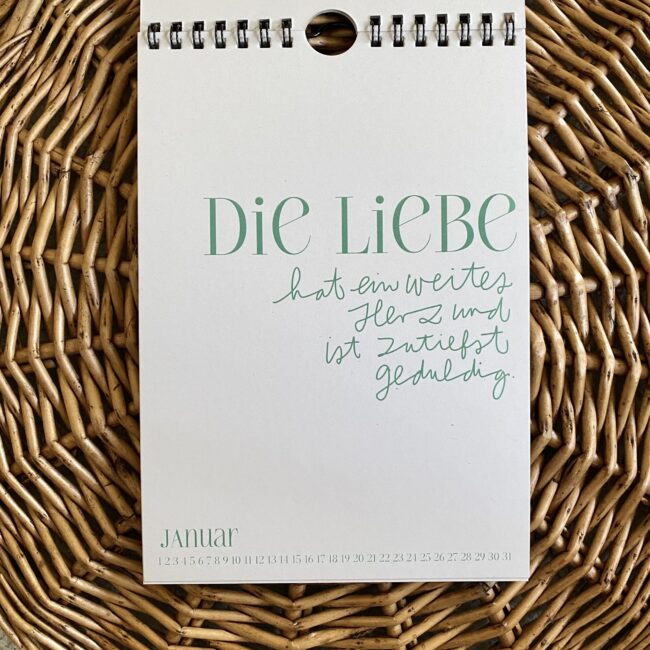 Die Liebe
hat ein weites
Herz und
ist zutiefst
geduldig.
Januar
1 2 3 4 5 6 7 8 9 10 11 12 13 14 15 16 17 18 19 20 21 22 23 24 25 26 27 28 29 30 31